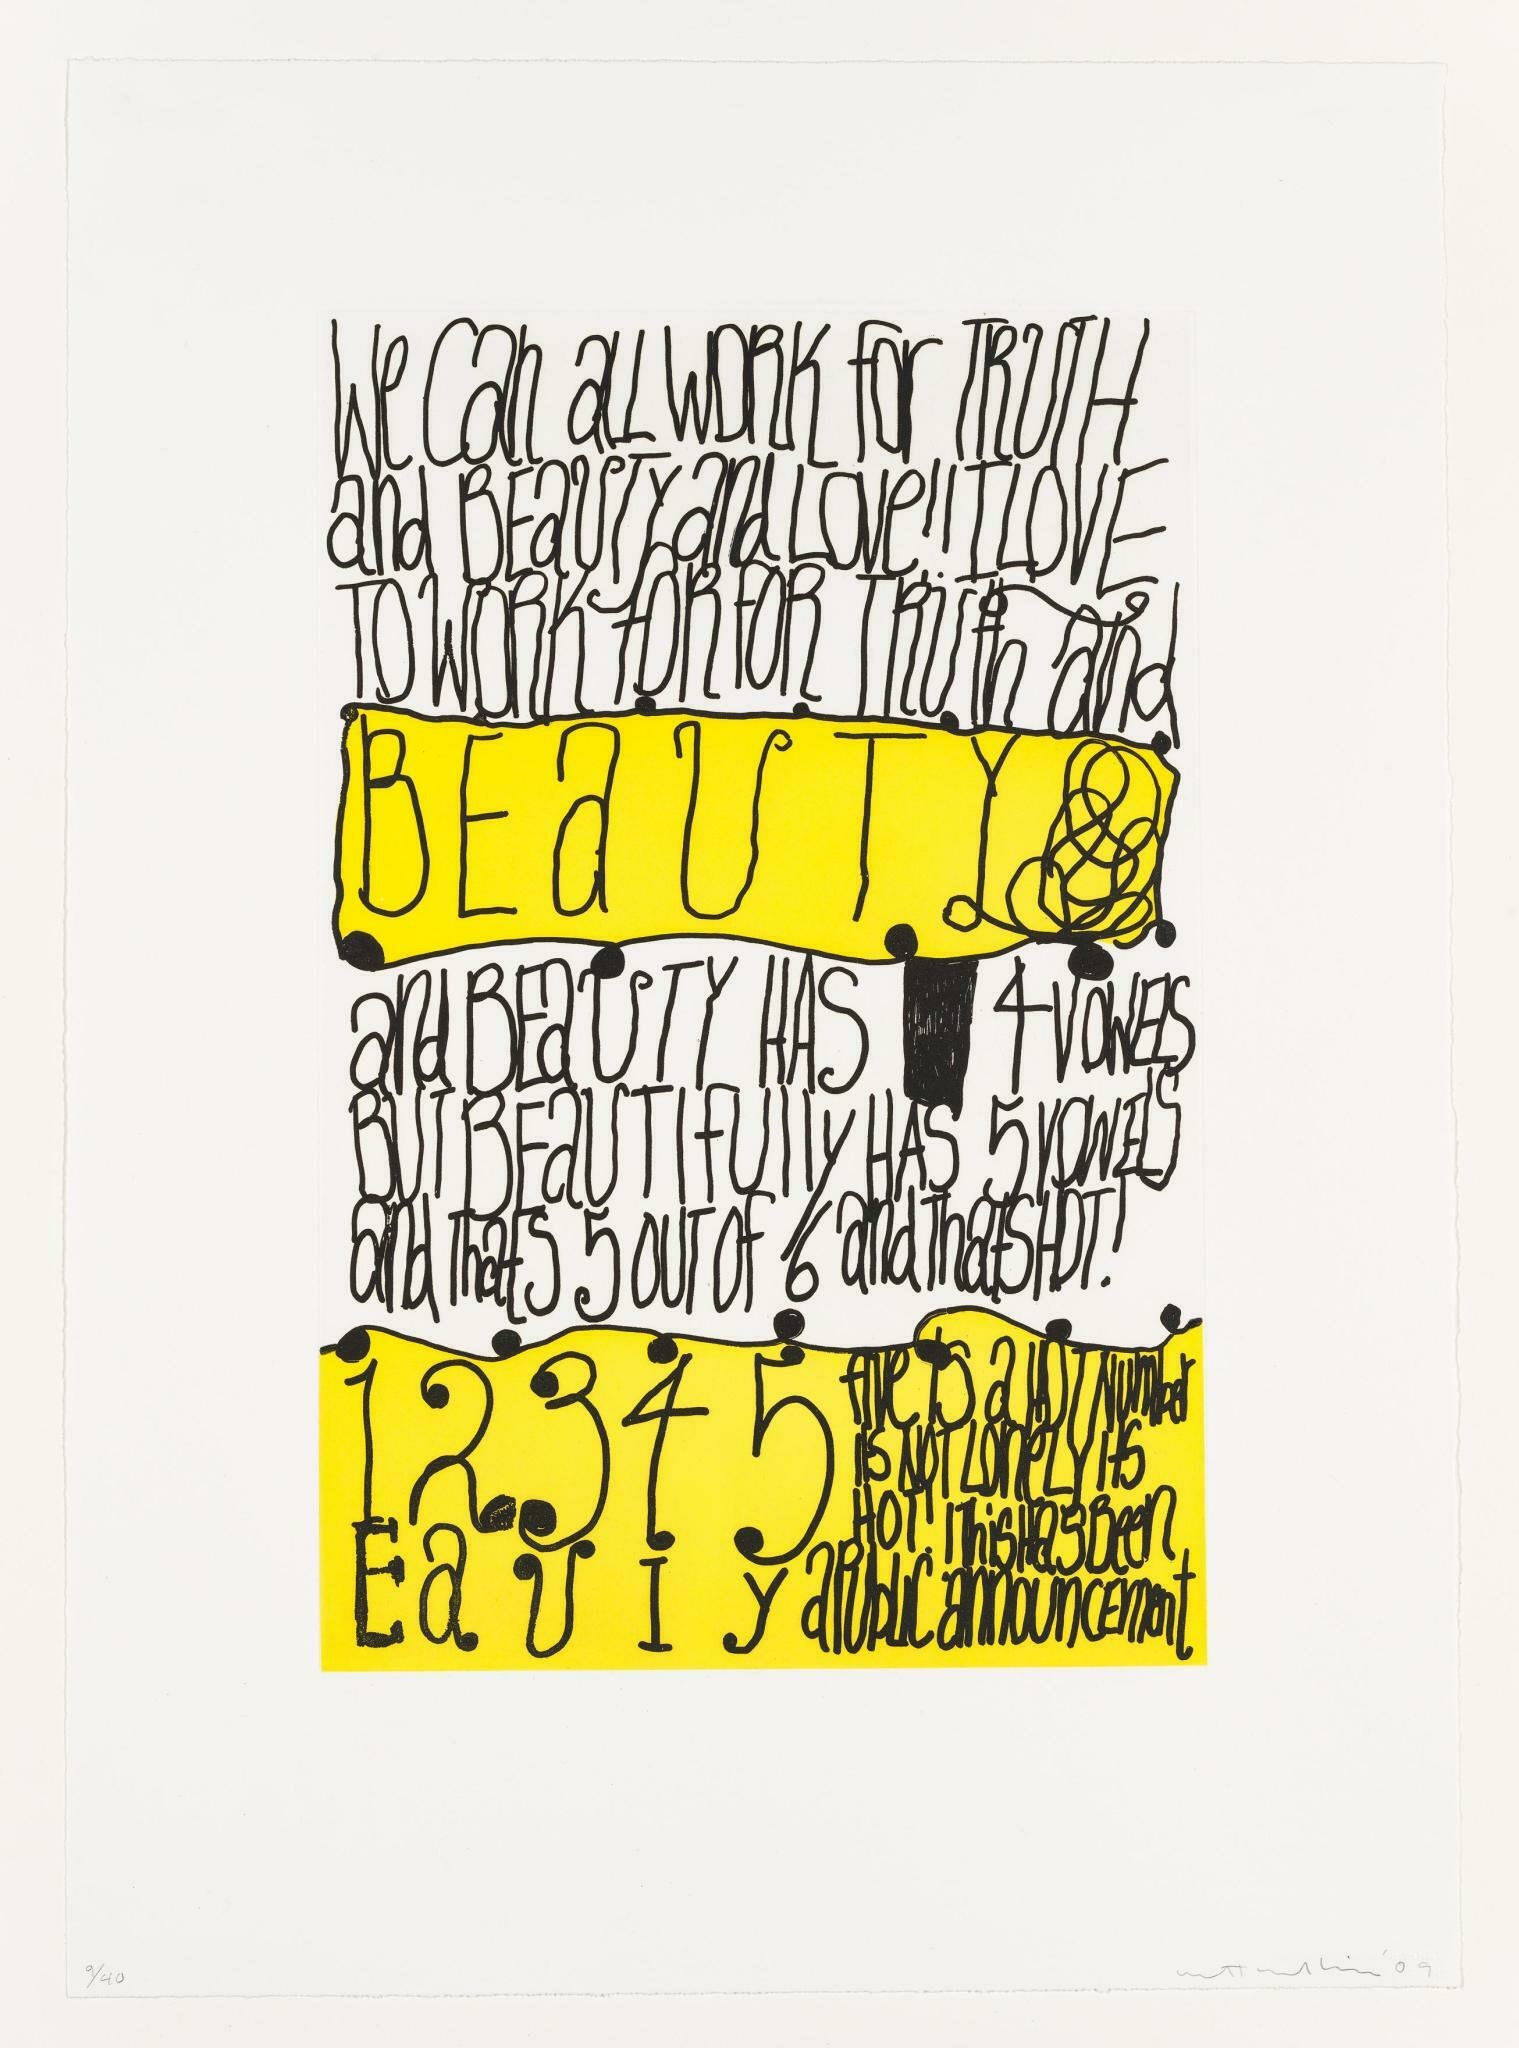 We Can all WORK for TRUTH
and BEaUTY and LOVE!! I LOVE
TO WORK FOR FOR TRUth and
BEaUTY
and BEaUTY HAS 4 VOWELS
BUT BEaUTIFUllY HAS 5 VOWELS
and thats 5 OUT OF 6 and thats HOT!
1 2 3 4 5 FIVE IS a HOT Number
IS NOT LOneLY ITS
HOT! This Has Been
E a U I y a Public announcement
9/40
'09